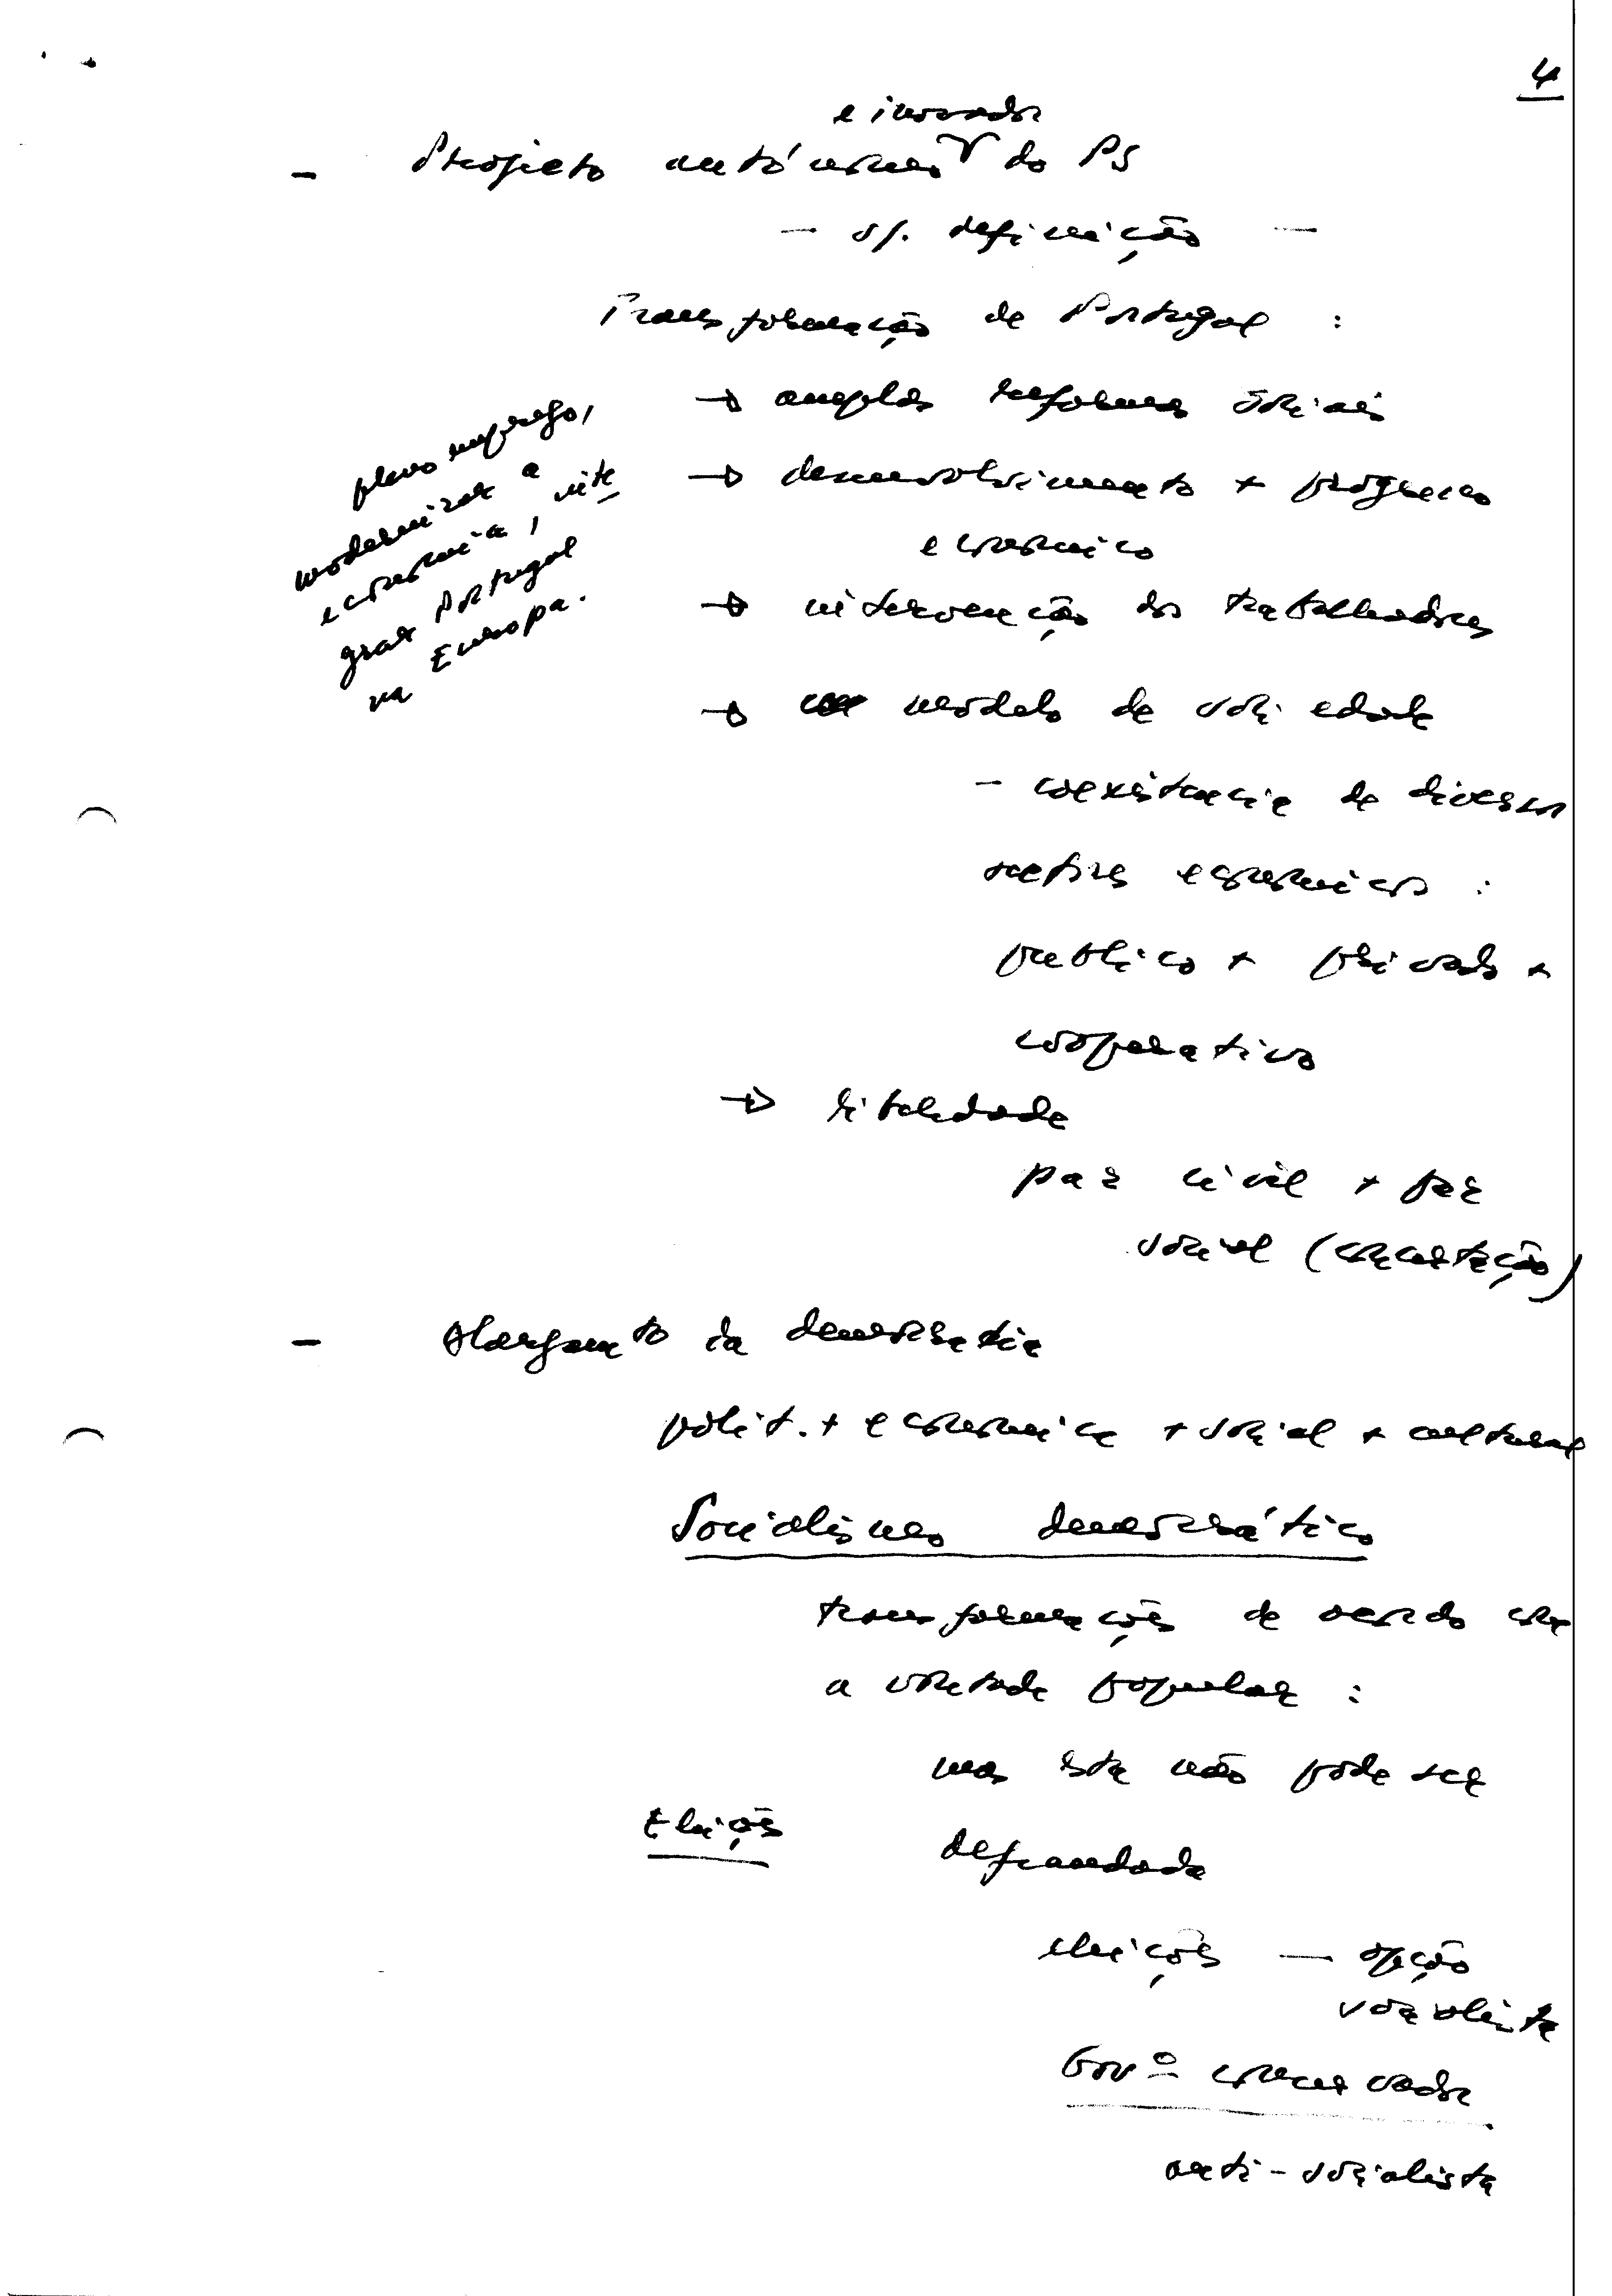 4
e inovador
- Projeto autónomo do PS
- s/. definição -
Transformação de Portugal :
→ amplas reformas sociais
→ desenvolvimento + progresso
económico
pleno emprego,
modernizar a
economia, inte
grar Portugal
na Europa.
→ intervenção dos trabalhadores
→ modelo de sociedade
- coexistencia de diversos
sectores económicos :
publico + privado +
cooperativo
→ liberdade
paz civil + paz
social (concertação)
- Alargamto da democratia
polit. + economica + social + cultural
Socialismo democrático
transformações de acordo com
a vontade popular :
mas esta não pode ser
Eleições
defraudada
eleições — opção
socialista
Govº conservador
anti-socialista